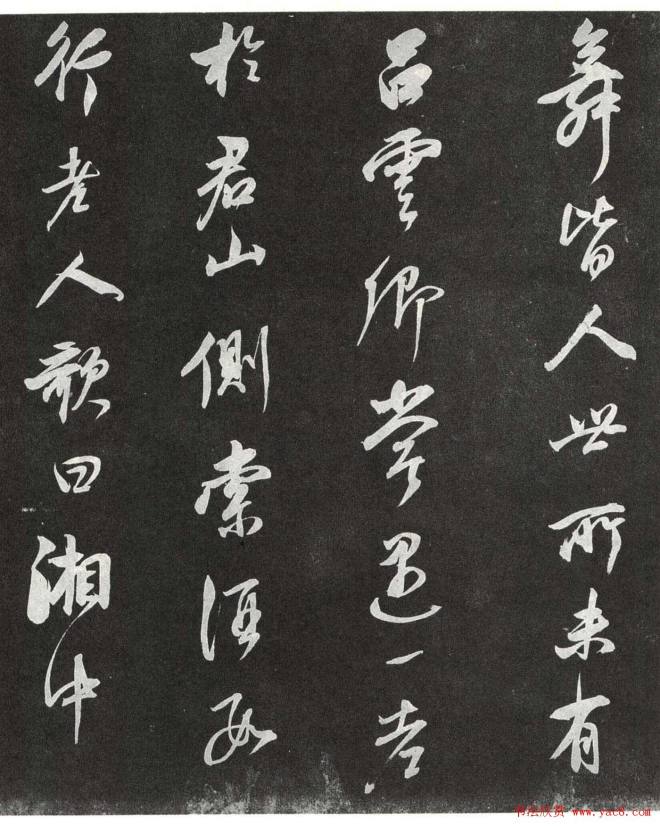 舞皆人世所未有
吕雲卿嘗遇一老
於君山側索酒數
行老人歌曰湘中
书法欣赏 www.yac8.com